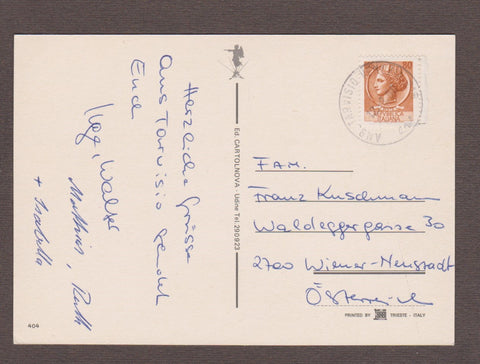 Herzliche Grüsse
aus Tarvisio sendet
Euch
Walter
Matthias, Ruth
+ Isabella
404
Ed. CARTOLNOVA - Udine Tel. 290923
TARVISIO
POSTE
REPUBBLICA
ITALIANA
FAM.
Franz Kuschmann
Waldeggergasse 30
2700 Wiener-Neustadt
Österreich
PRINTED BY TRIESTE - ITALY